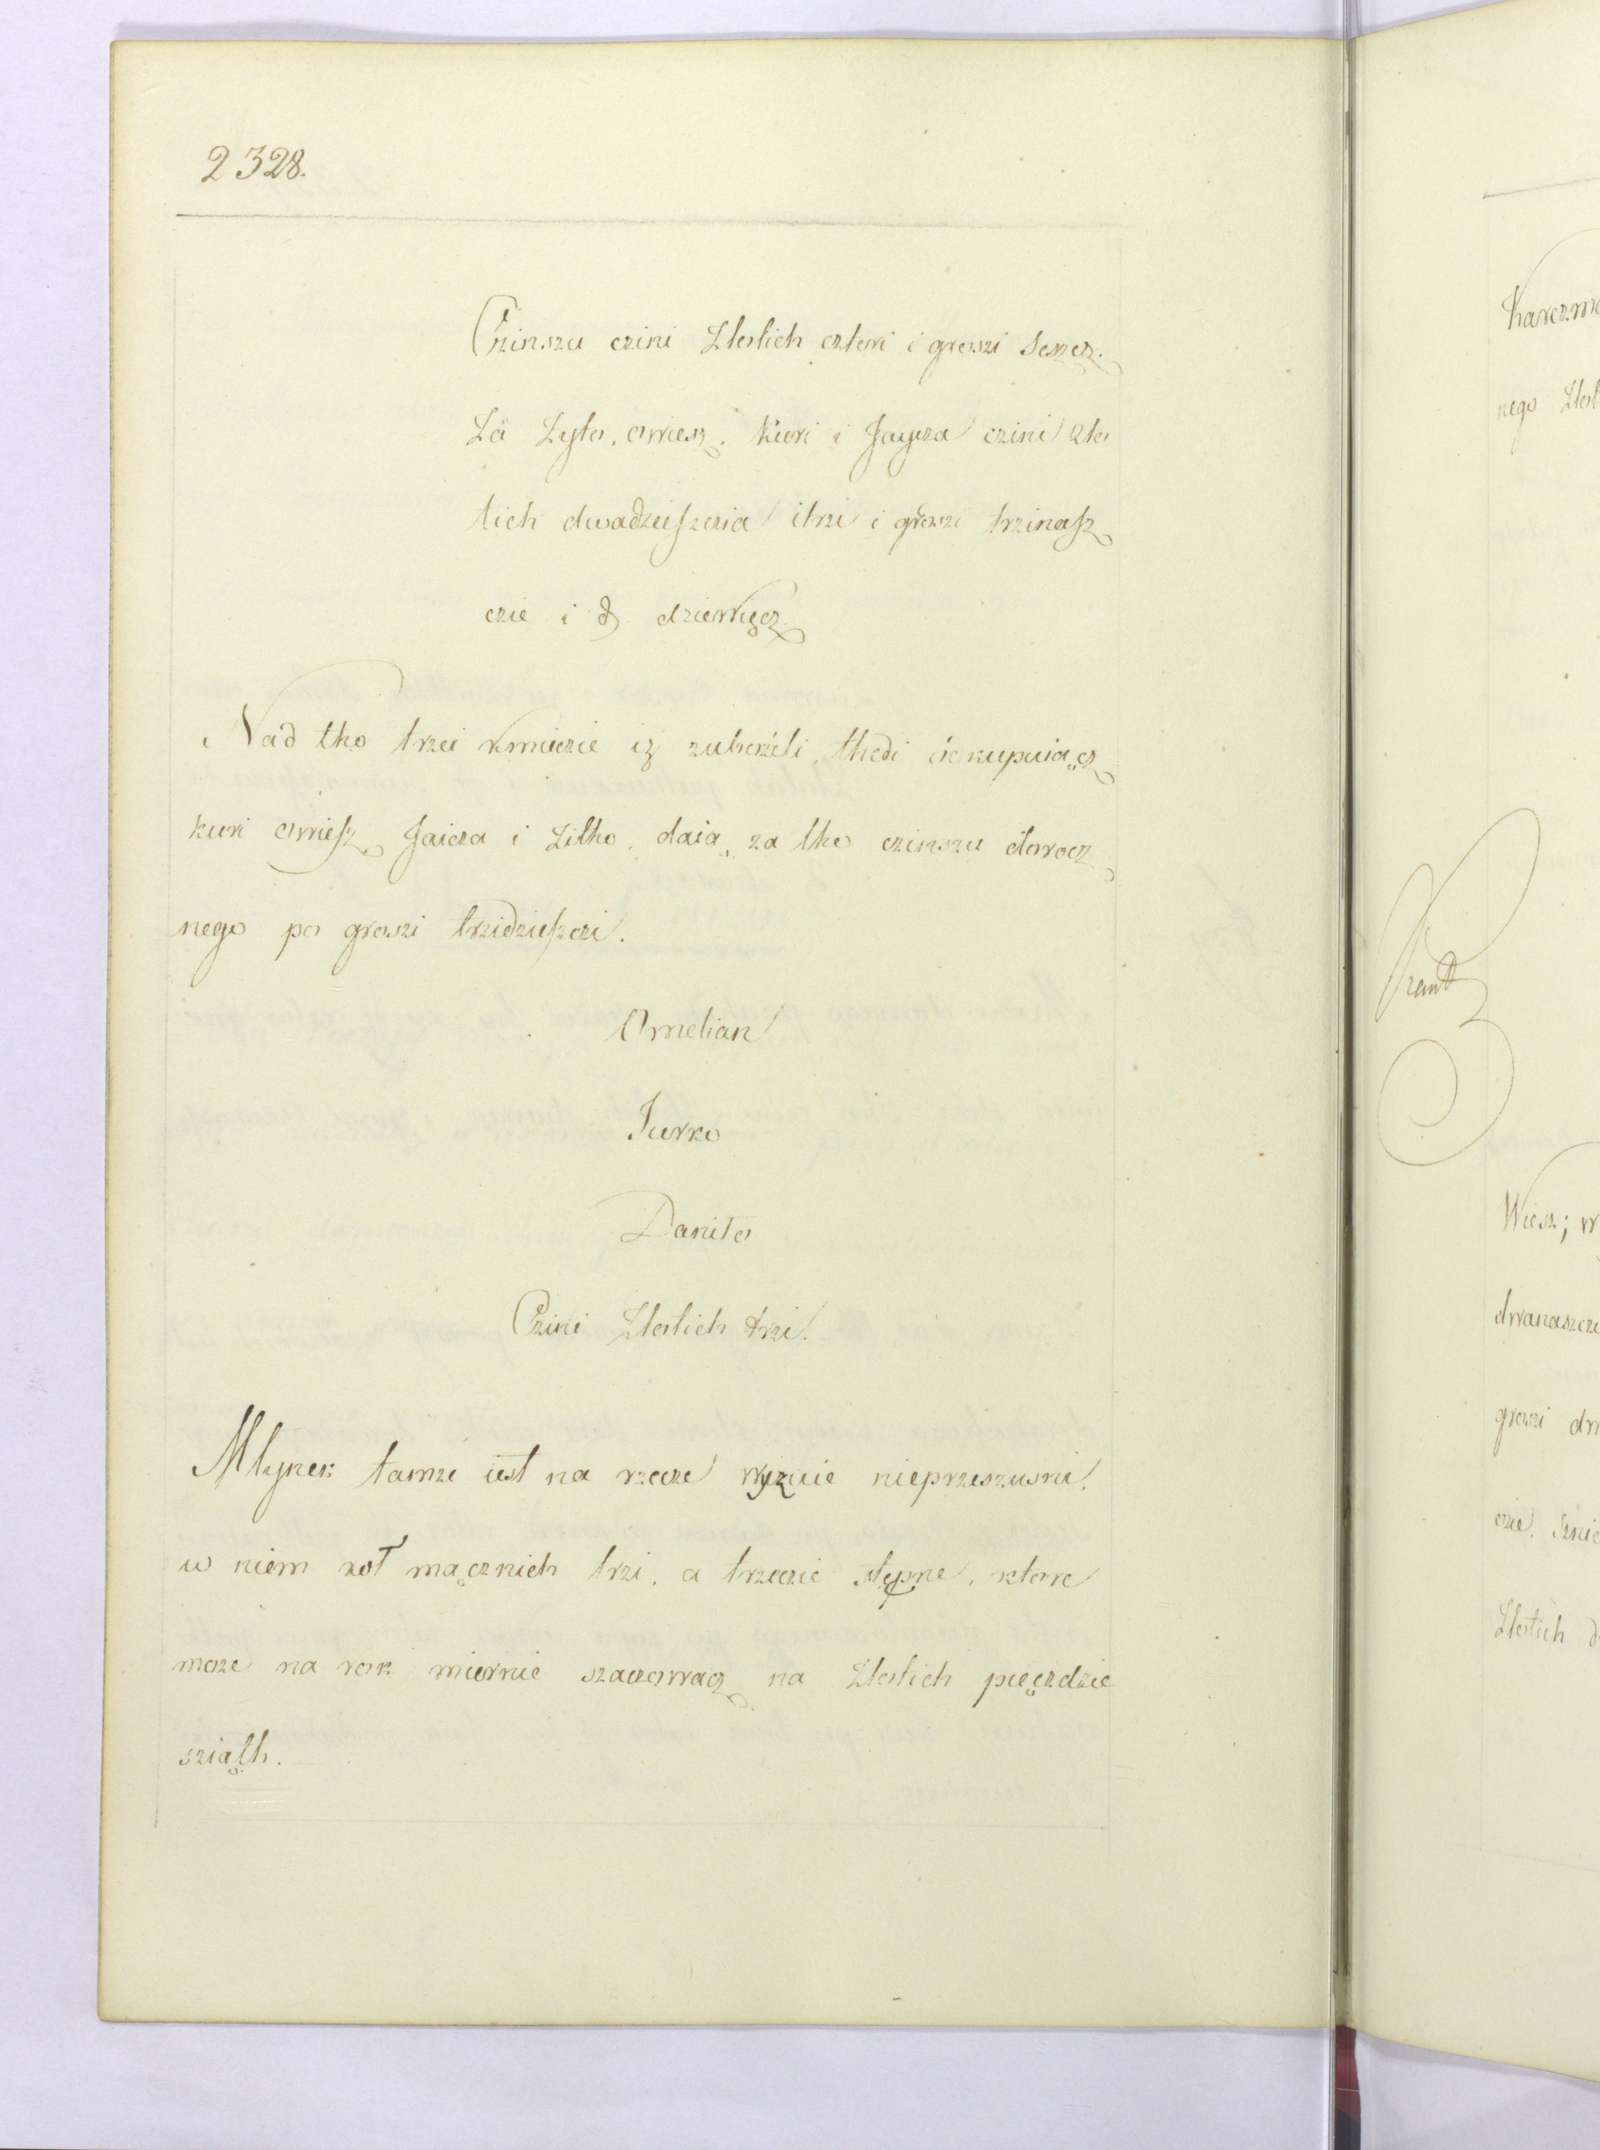 2328.
Czinszu czini Złotich cztori i groszi szescz.
Zä Zyto, owiesz, Kuri i Jaycza czini zło
tich dwadzieſzczia i trzi i groszi trzinaſz
czie i ₰ dziewięcz
Nad tho trzei kmiecie iż zuborzeli, thedi nie kupuiącz
kuri owieſz, Jaicza i Zitho, daią za tho czinszu dorocz
nego po groszi trzidzieſzczi.
Omelian
Jurko
Daniło
Czini Złotich trzi.
Młynek tamże iest na rzecze Wyznie nieprzeszusni.
w niem koł mącznich trzi, a trzeczie stępne, ktore
może na rok miernie szaczowacz na Złotich pięczdzie
sziąth.
Karczm
nego Złot
Grunt
Wiesz; w
dwanaszcz
groszi dw
czie. Sznie
Złotich d